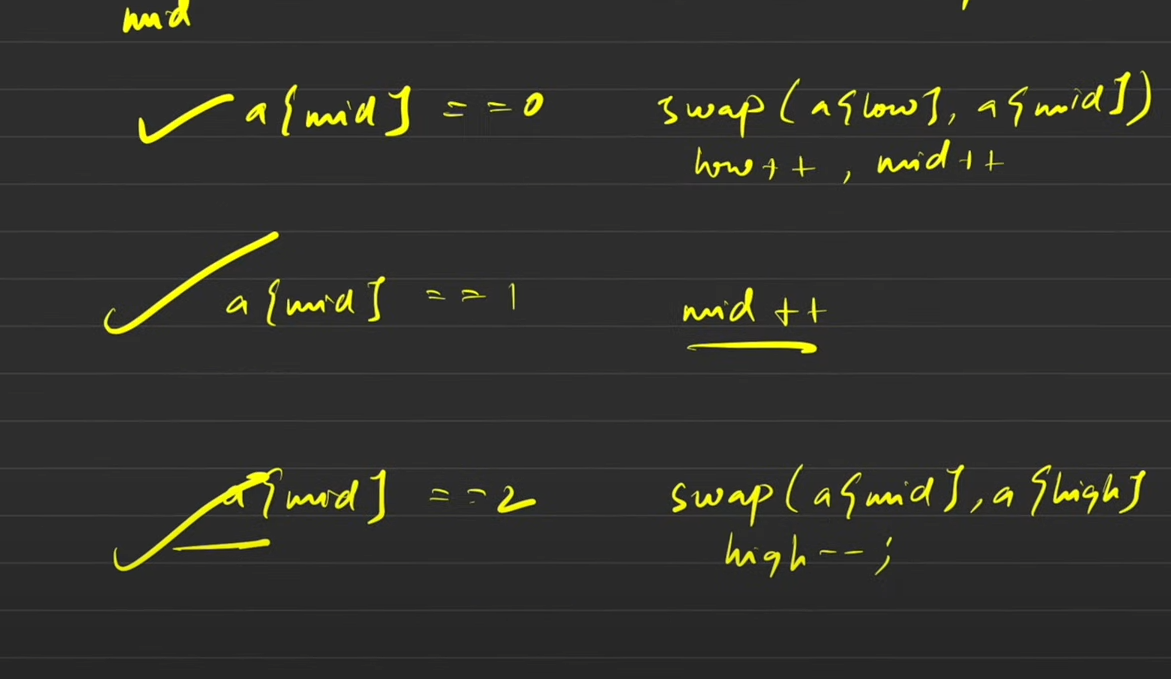 mid
a[mid] == 0 swap(a[low], a[mid])
low++, mid++
a[mid] == 1 mid++
a[mid] == 2 swap(a[mid], a[high]
high--;